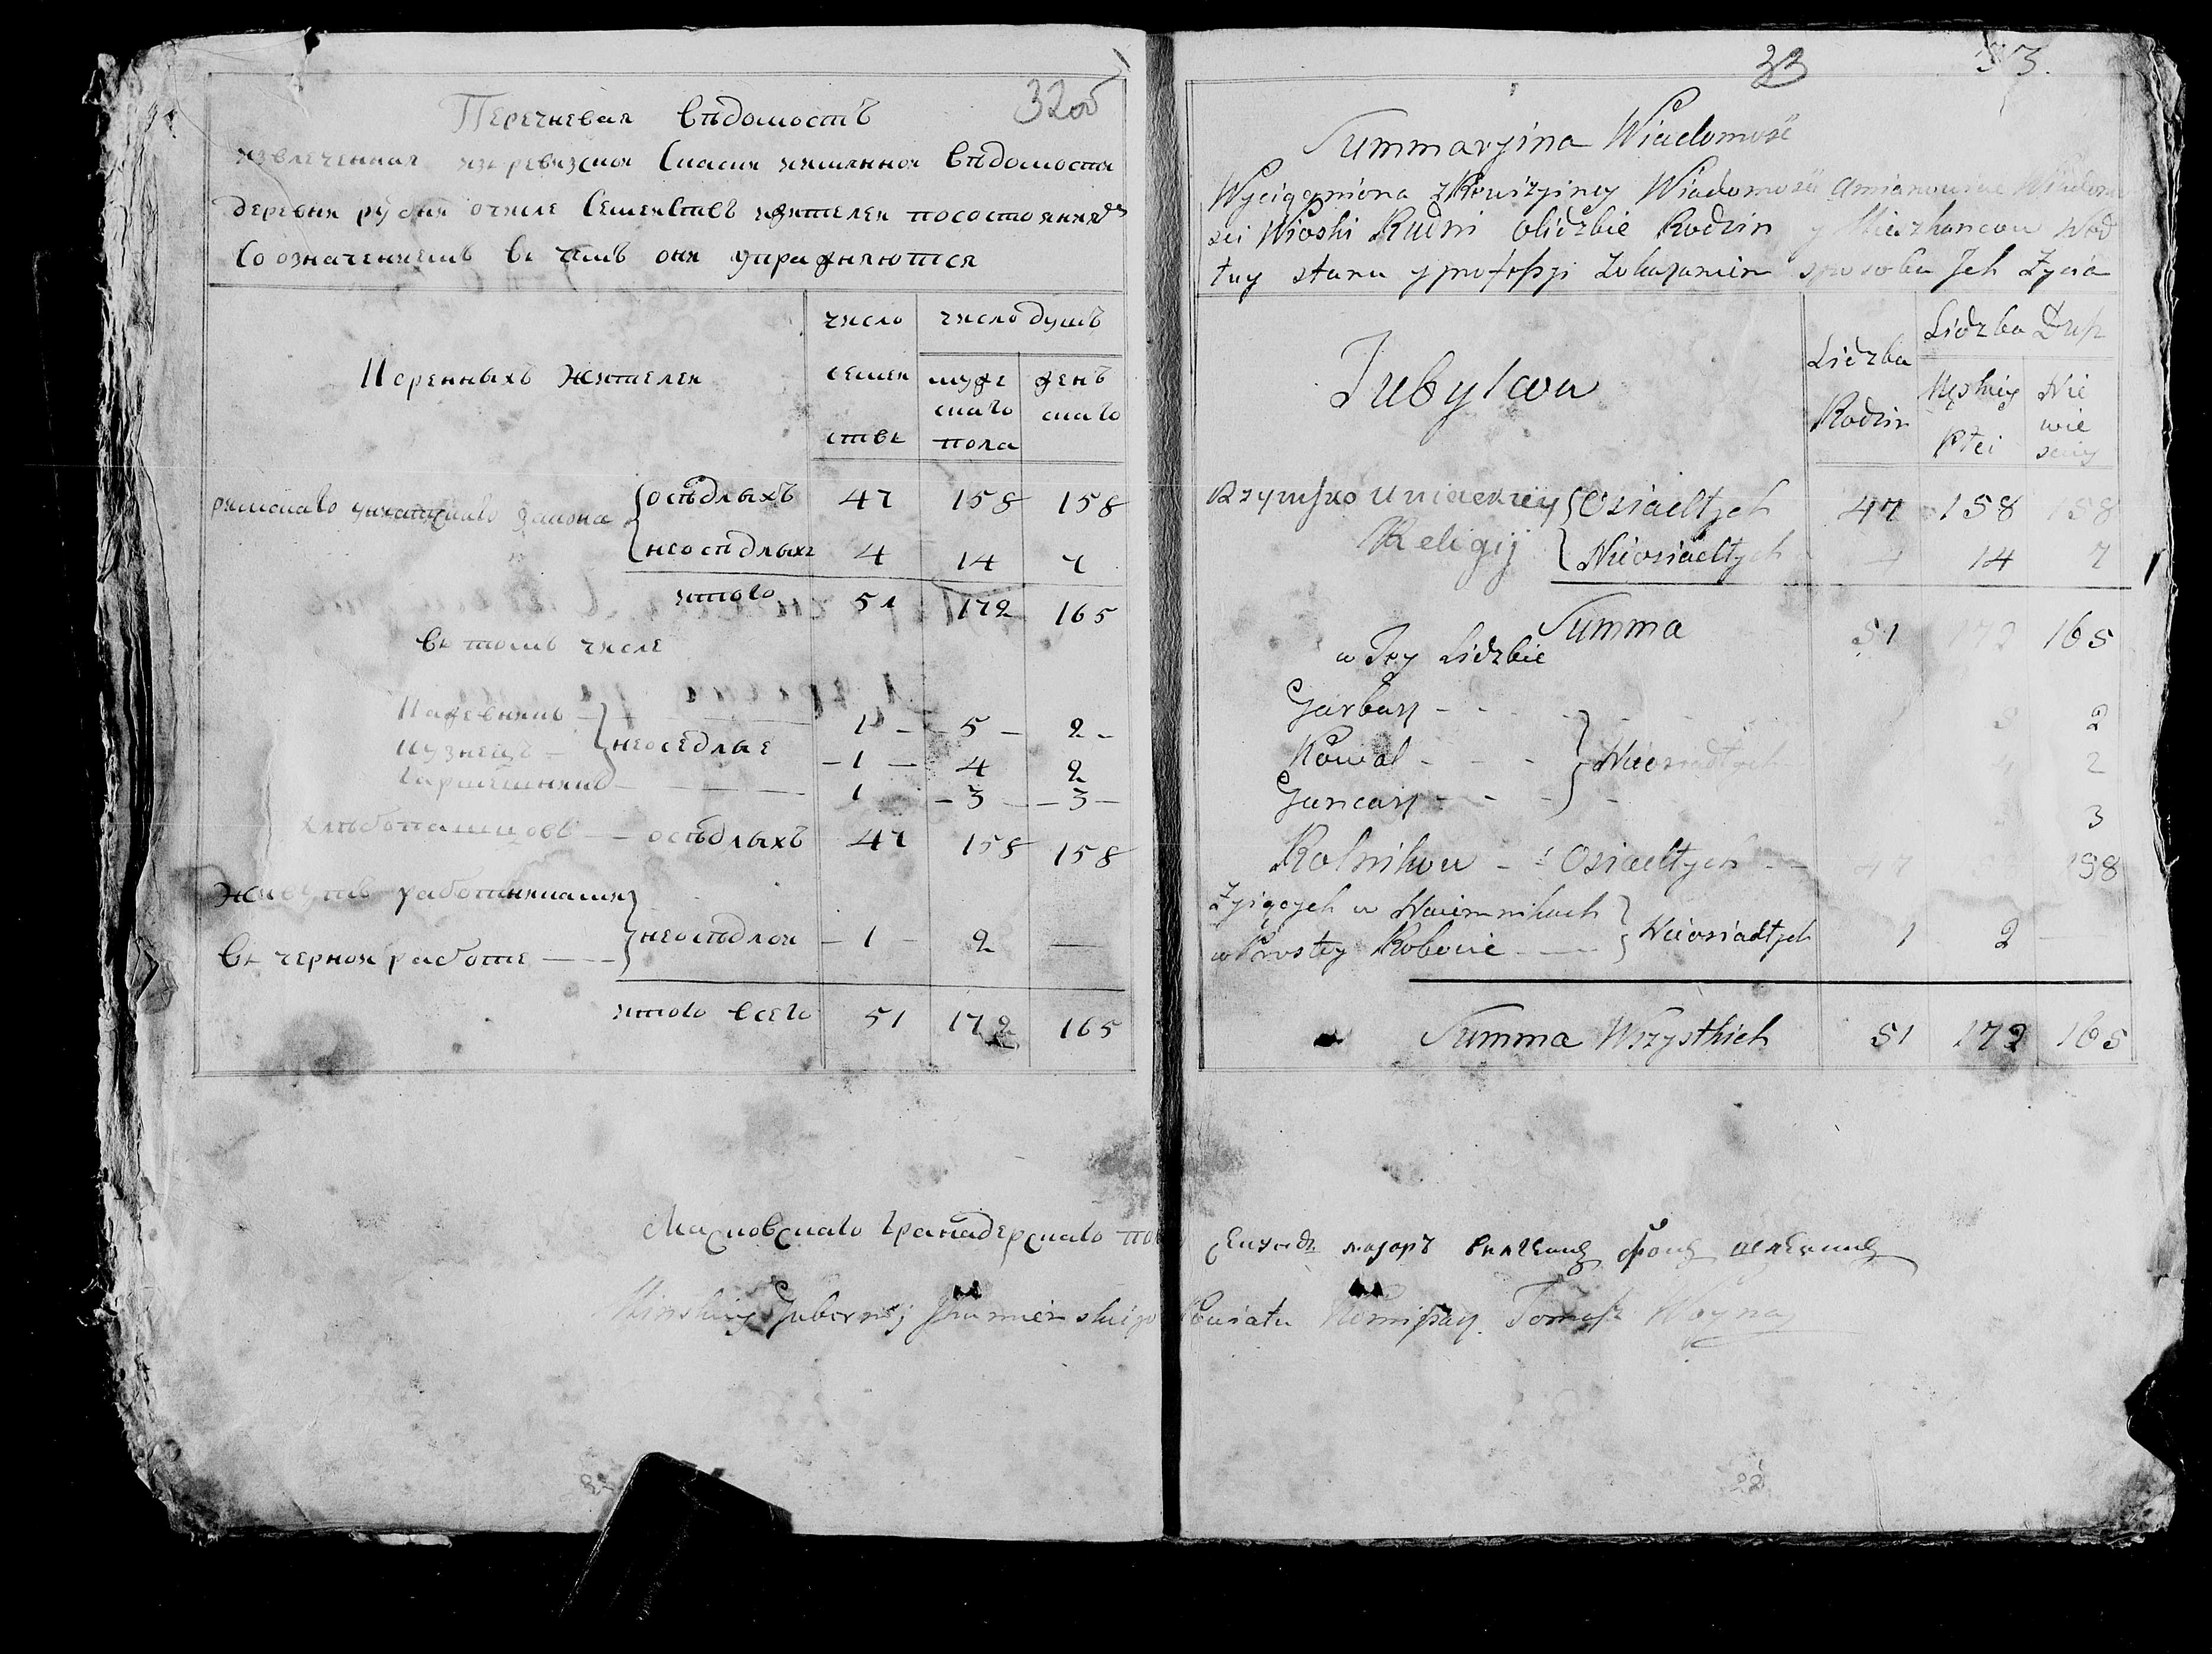 32об
Перечневая вѣдомость
извлеченная из ревизской Сказки имянной вѣдомости
деревни рудни о числе Семействъ жителей по состояния
Со означениемъ въ чемъ они упражняются
Коренныхъ Жителей
число семействъ
число душъ
мужескаго пола
женскаго
римскаго униатскаго закона
осѣдлыхъ 47 158 158
неосѣдлыхъ 4 14 7
итого 51 172 165
въ томъ числе
Кожевникъ 1 5 2
Кузнецъ неоседлые 1 4 2
1 3 3
хлѣбопашцовъ осѣдлыхъ 47 158 158
Живутъ работниками
въ черной работе неосѣдлой 1 2 —
итого всего 51 172 165
33 33.
Summaryina Wiadomość
Wyciągniona z Rewizyiney Wiadomości
sci Wioski Rudni o lidzbie Rodzin y Mieszkancow Wed
łuy stanu y professyi z okazaniem sposobu Jch Zycia
Lidzba Rodzin
Lidzba Dusz
Męskiey Płci
Niewiesciey
Rzymsko Uniackiey Religij
Osiadłych 47 158 158
Nieosiadłych 4 14 7
Summa 51 172 165
w Tey Lidzbie
Garbarz 2
Kowal Nieosiadłych 2
Garncarz 3
Rolnikow Osiadłych 47 158
Zyiących w Naiemnikach
w Prostey Robocie Nieosiadłych 1 2
Summa Wszystkich 51 172 165
Московскаго гранадерскаго
Minskiey Gubernij Powiatu Komissarz Tomasz Woyna